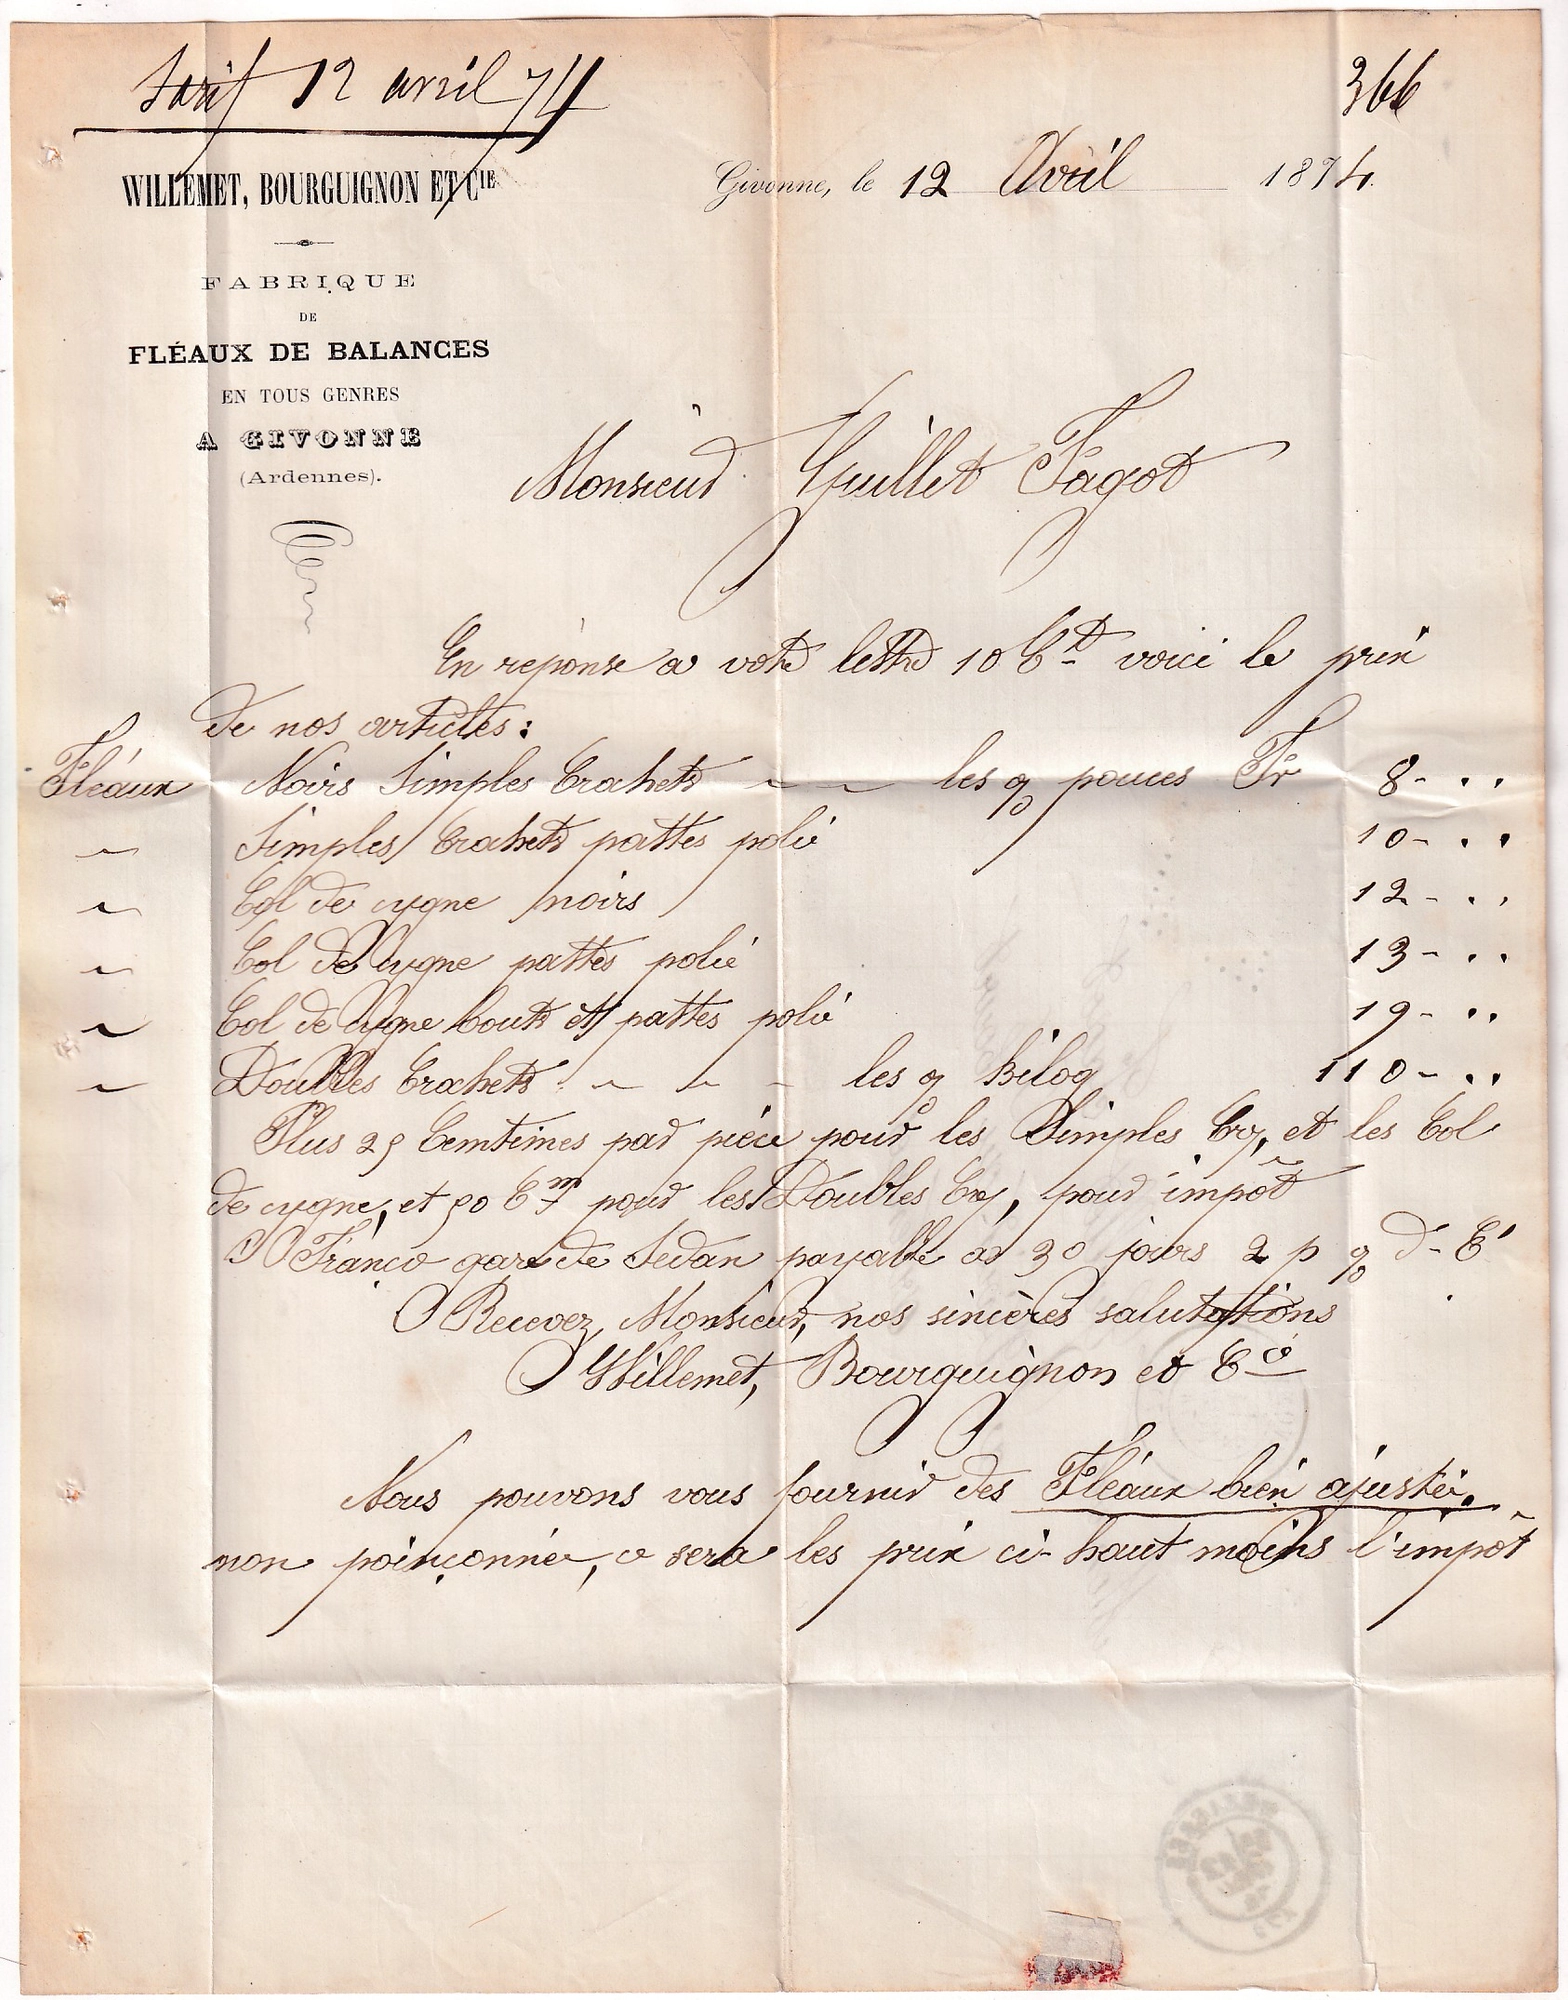 tarif 12 avril 74
366
WILLEMET, BOURGUIGNON ET CIE
Givonne, le 12 Avril 1874.
FABRIQUE
DE
FLÉAUX DE BALANCES
EN TOUS GENRES
A GIVONNE
(Ardennes).
Monsieur Guillet Fagot
En réponse a votre lettre 10 Ct voici le prix
de nos articles :
Fléaux Noirs Simples Crochets les % pouces Fr 8 - ..
~ Simples Crochets pattes polie 10 - ..
~ Col de cygne noirs 12 - ..
~ Col de Cygne pattes polie 13 - ..
~ Col de Cygne bouts et pattes polie 19 - ..
~ Doubles Crochets ~ ~ - les % Kilog 110 - ..
Plus 25 Centimes par pièce pour les Simples Cr, et les Col
de cygne, et 50 Cm pour les Doubles Cr, pour impôt
Franco gare de Sedan payable as 30 jours 2 p % d'E
Recevez, Monsieur, nos sincères salutations
Willemet, Bourguignon et Cie
Nous pouvons vous fournir des Fléaux bien ajustée.
non poinçonnée, ce sera les prix ci-haut moins l'impôt